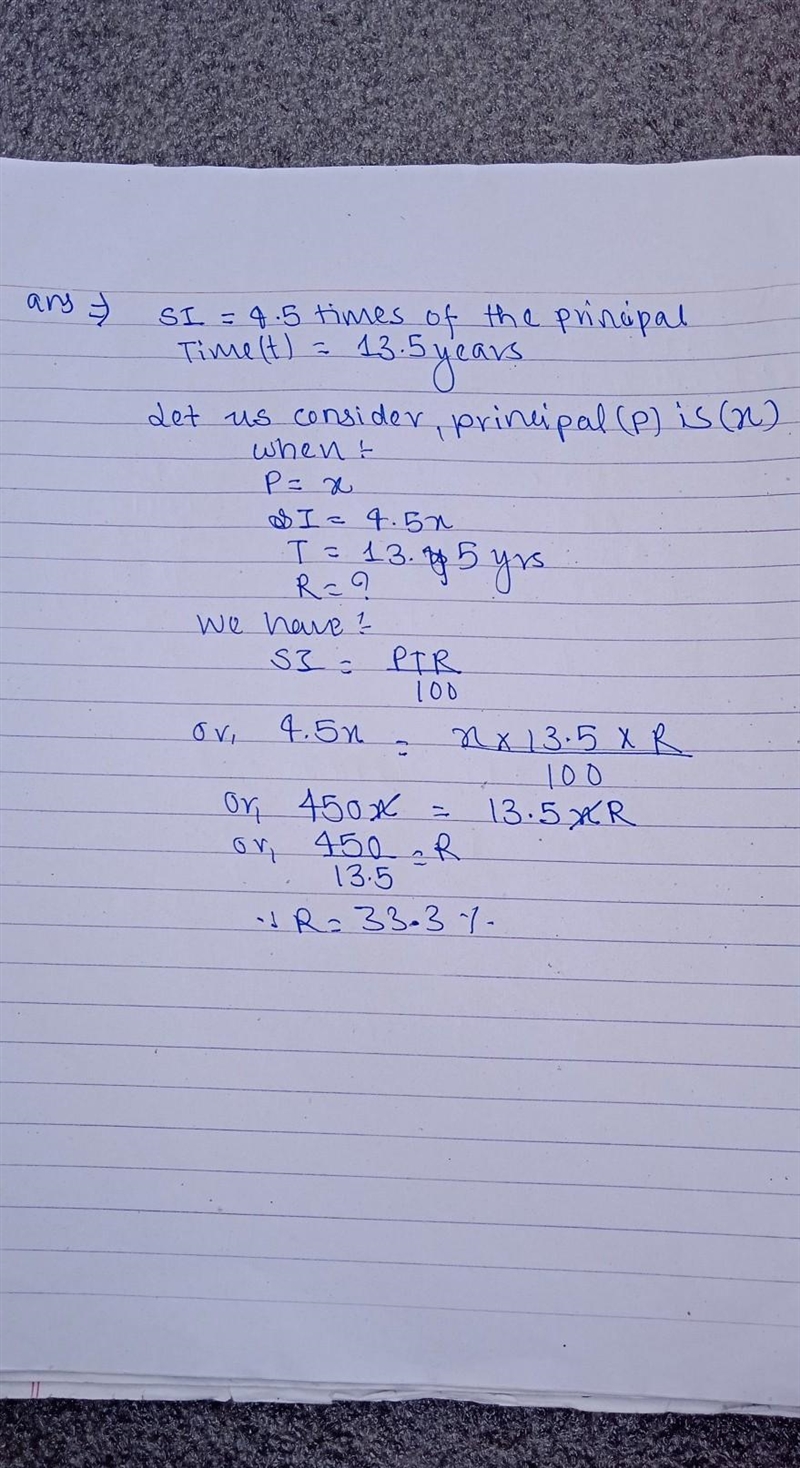 ans ⇒ SI = 4.5 times of the principal
Time(t) = 13.5 years
Let us consider, principal (P) is (x)
when :-
P = x
SI = 4.5x
T = 13.5 yrs
R = ?
We have :-
SI = PTR
100
or, 4.5x = x × 13.5 × R
100
or, 450x = 13.5xR
or, 450 = R
13.5
∴ R = 33.3 %